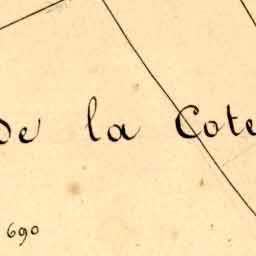 de la Cote
690